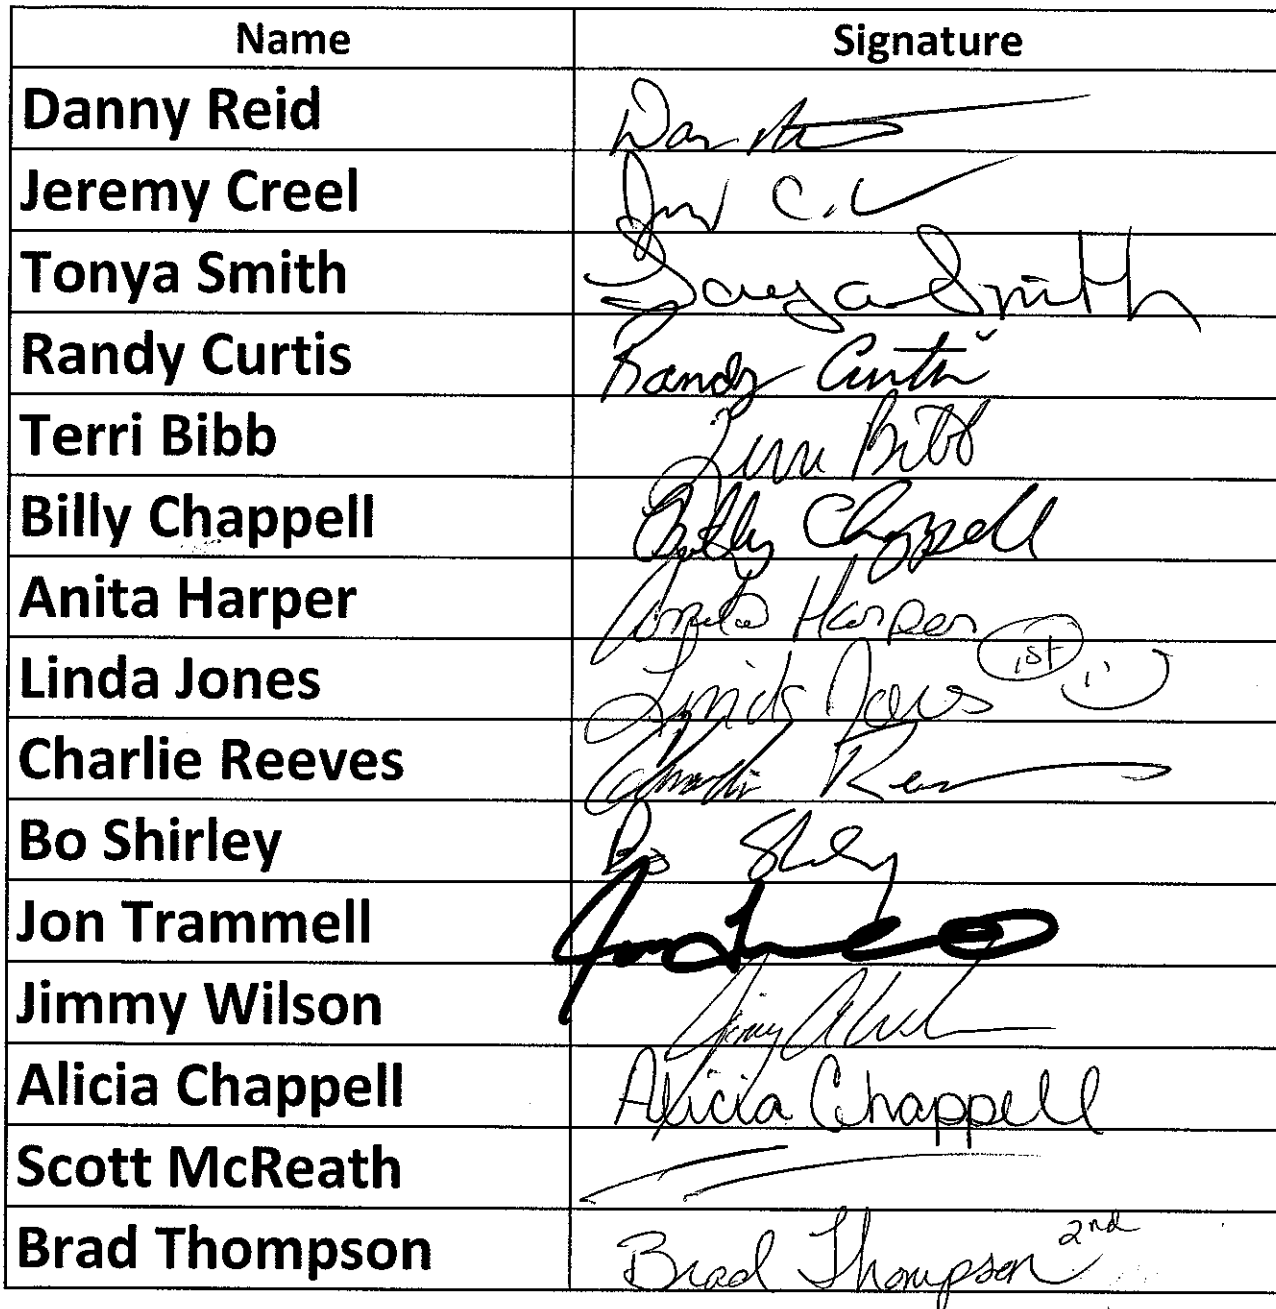 Name Signature
Danny Reid Dan
Jeremy Creel C.
Tonya Smith Tonya Smith
Randy Curtis Randy Curtis
Terri Bibb Terri Bibb
Billy Chappell Billy Chappell
Anita Harper Anita Harper
Linda Jones Linda Jones 1st
Charlie Reeves Charlie
Bo Shirley Bo Shirley
Jon Trammell
Jimmy Wilson Jimmy
Alicia Chappell Alicia Chappell
Scott McReath
Brad Thompson Brad Thompson 2nd